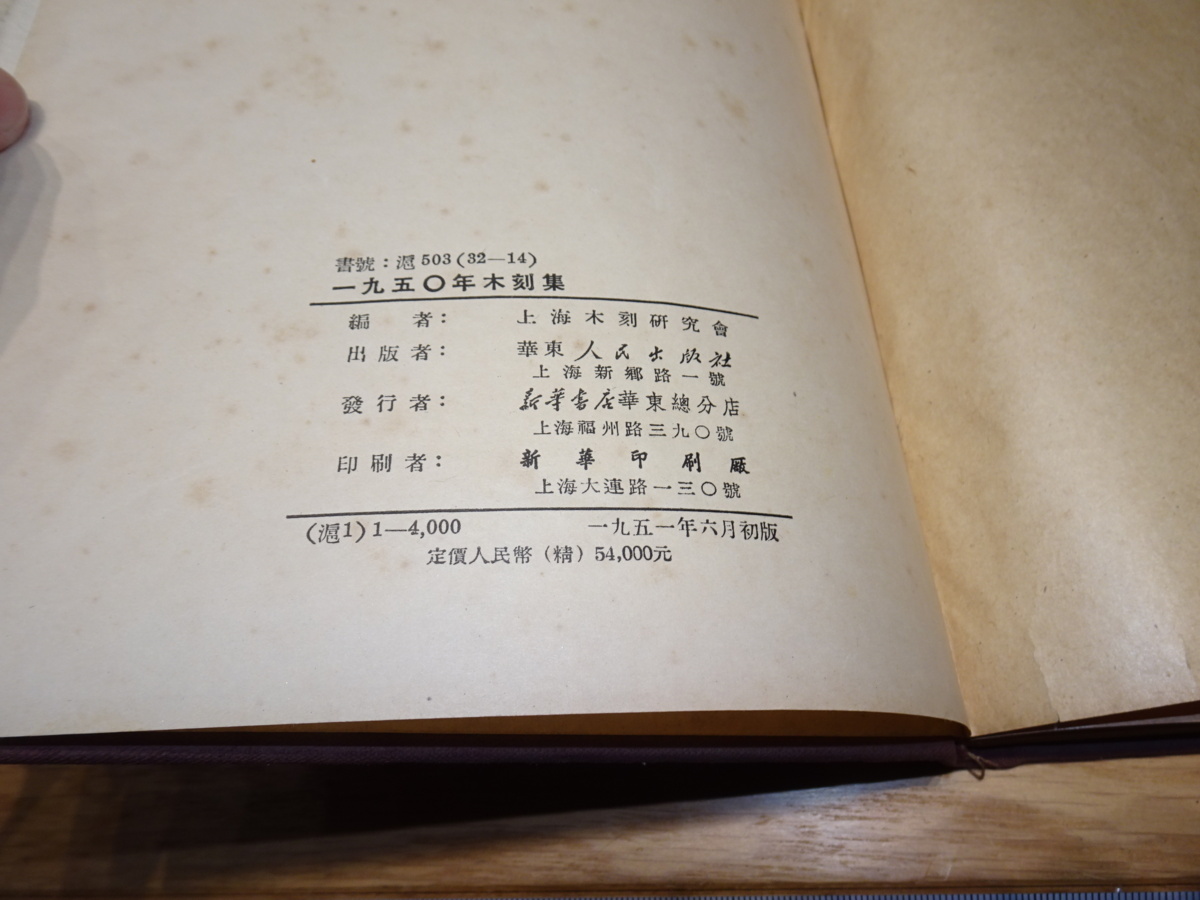 書號：滬503(32—14)
一九五〇年木刻集
編者： 上海木刻研究會
出版者： 華東人民出版社
上海新鄉路一號
發行者： 新華書店華東總分店
上海福州路三九〇號
印刷者： 新華印刷廠
上海大連路一三〇號
(滬1) 1—4,000 一九五一年六月初版
定價人民幣（精）54,000元